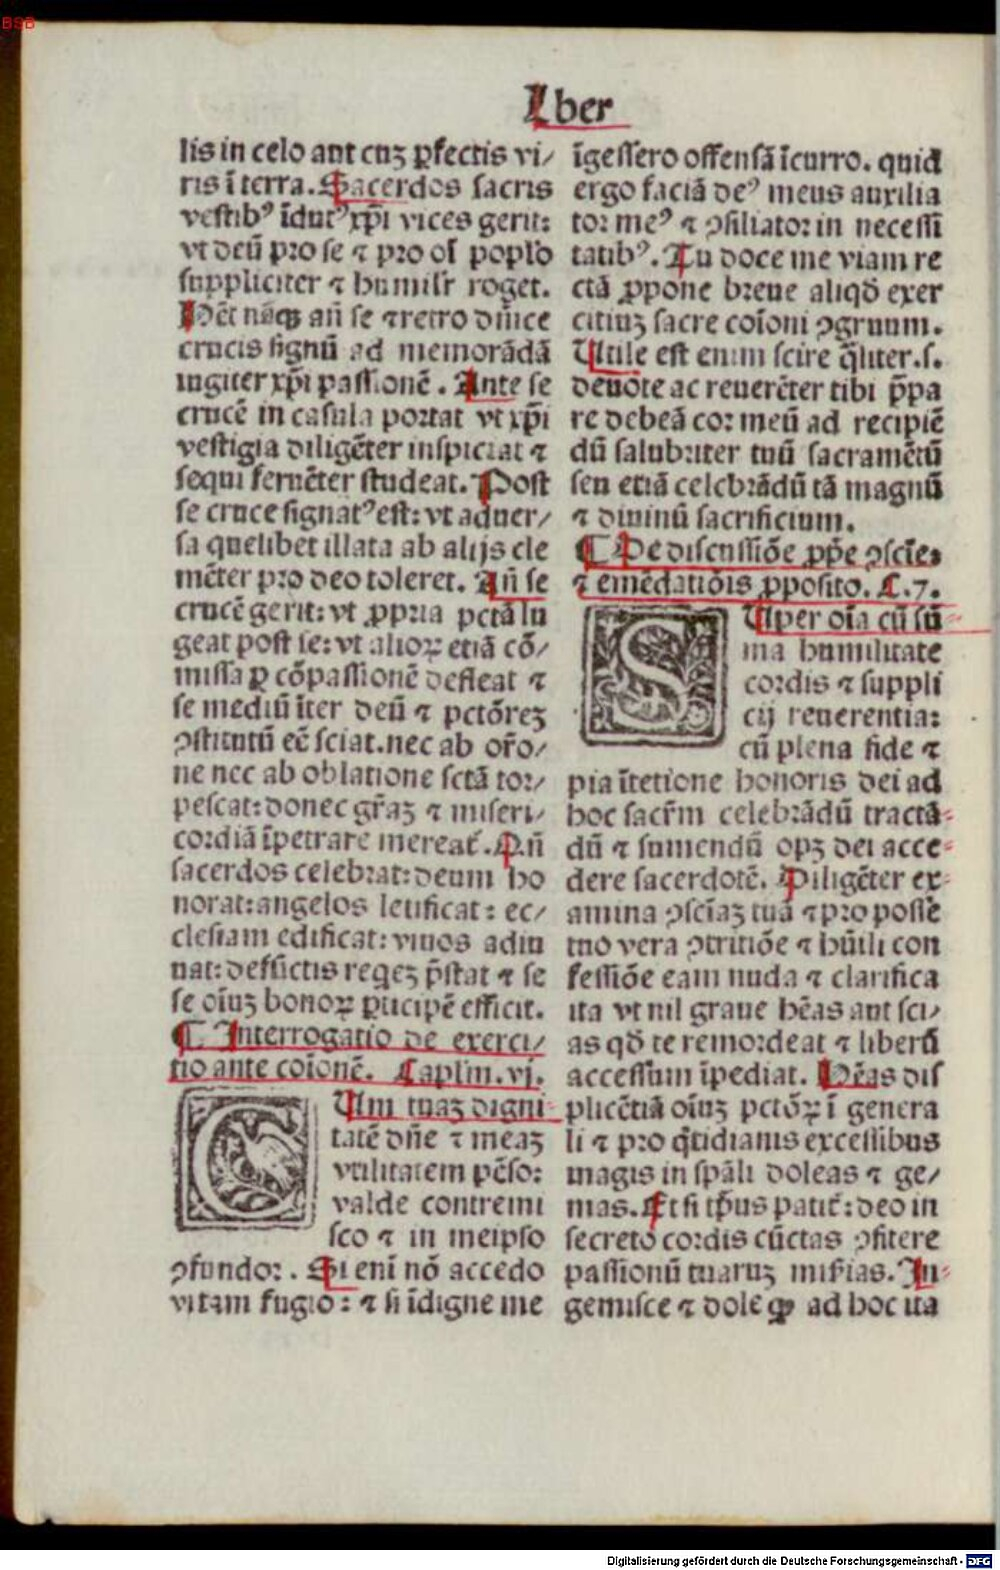 Liber
lis in celo aut cuꝫ ꝑfectis vi/
ris ī terra. Sacerdos sacris
vestibꝰ īdutꝰ xp̄i vices gerit:
vt deū pro se ⁊ pro oī poplo
suppliciter ⁊ humilr roget.
Hēt nāqꝫ an̄ se ⁊ retro dn̄ice
crucis signū ad memorādā
iugiter xp̄i passionē. Ante se
crucē in casula portat vt xp̄i
vestigia diligēter inspiciat ⁊
sequi feruēter studeat. Post
se cruce signatꝰ est: vt aduer/
sa quelibet illata ab alijs cle
mēter pro deo toleret. An̄ se
crucē gerit: vt ꝓpria pctā lu
geat post se: vt alioꝝ etiā cō/
missa ꝑ cōpassionē defleat ⁊
se mediū īter deū ⁊ pctōreꝫ
ꝯstitutū eē sciat. nec ab oro/
ne nec ab oblatione sctā tor/
pescat: donec gr̄aꝫ ⁊ miseri/
cordiā īpetrare mereat᷑. Qn̄
sacerdos celebrat: deum ho
norat: angelos letificat: ec/
clesiam edificat: viuos adiu
uat: defūctis reqeꝫ p̄stat ⁊ se
se oīuꝫ bonoꝝ ꝑticipē efficit.
¶ Interrogatio de exerci/
tio ante coīonē. Caplm. vj.
CUm tuaꝫ digni
tatē dn̄e ⁊ meaꝫ
vtilitatem pēso:
valde contremi
sco ⁊ in meipso
ꝯfundor. Si enī nō accedo
vitam fugio: ⁊ si īdigne me
īgessero offensā īcurro. quid
ergo faciā deꝰ meus auxilia
tor meꝰ ⁊ ꝯsiliator in necessi
tatibꝰ. Tu doce me viam re
ctā ꝓpone breue aliqd̄ exer
citiuꝫ sacre coīoni ꝯgruum.
Utile est enim scire q̄liter. s.
deuote ac reuerēter tibi p̄pa
re debeā cor meū ad recipiē
dū salubriter tuū sacramētū
seu etiā celebrādū tā magnū
⁊ diuinū sacrificium.
¶ De discussiōe ꝓp̄e ꝯscīe:
⁊ emēdatiōis ꝓposito. C. 7.
SUper oīa cū sū
ma humilitate
cordis ⁊ suppli
cij reuerentia:
cū plena fide ⁊
pia ītētione honoris dei ad
hoc sacr̄m celebrādū tractā
dū ⁊ sumendū opꝫ dei acce
dere sacerdotē. Diligēter ex
amina ꝯscīaꝫ tuā ⁊ pro posse
tuo vera ꝯtritiōe ⁊ hūili con
fessiōe eam nuda ⁊ clarifica
ita vt nil graue hēas aut sci/
as qd̄ te remordeat ⁊ liberū
accessum īpediat. Hēas dis
plicētiā oīuꝫ pctōꝝ ī genera
li ⁊ pro q̄tidianis excessibus
magis in spāli doleas ⁊ ge/
mas. Et si tp̄us patit᷑: deo in
secreto cordis cūctas ꝯfitere
passionū tuaruꝫ mis̄ias. In
gemisce ⁊ dole ꝙ ad hoc ita
Digitalisierung gefördert durch die Deutsche Forschungsgemeinschaft - DFG
BSB